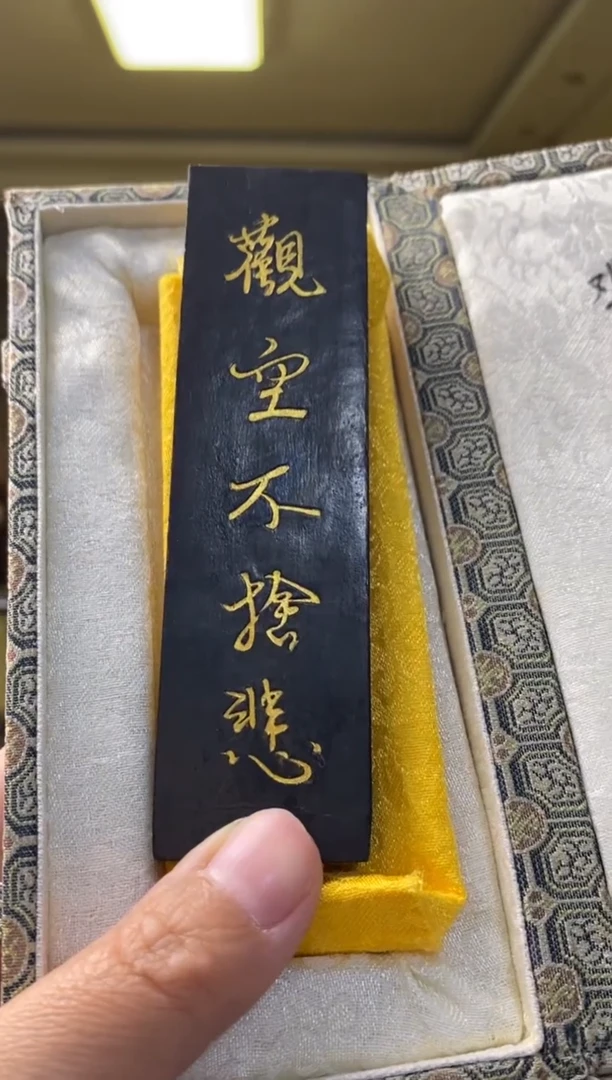 觀空不捨悲